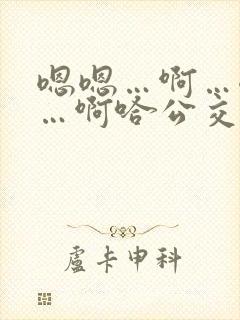 嗯嗯…啊…
…啊哈公交
盧卡申科